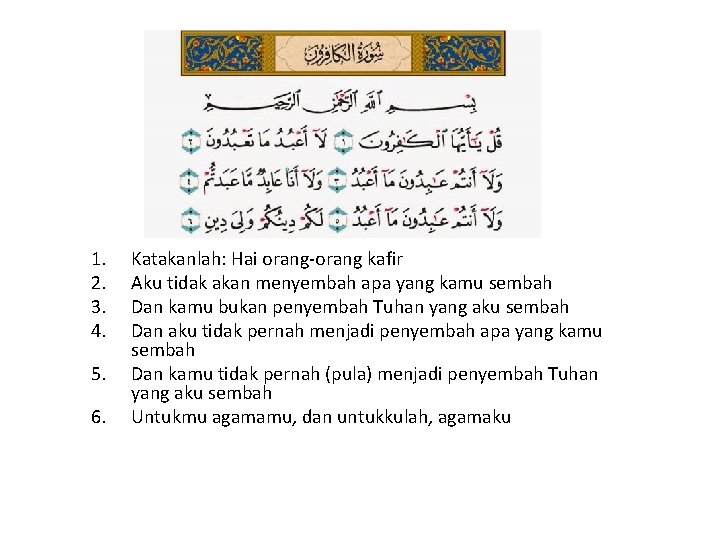 سُورَةُ الكَافِرُونَ
بِسْمِ اللَّهِ الرَّحْمَٰنِ الرَّحِيمِ
قُلْ يَا أَيُّهَا الْكَافِرُونَ ١ لَا أَعْبُدُ مَا تَعْبُدُونَ ٢
وَلَا أَنْتُمْ عَابِدُونَ مَا أَعْبُدُ ٣ وَلَا أَنَا عَابِدٌ مَّا عَبَدتُّمْ ٤
وَلَا أَنْتُمْ عَابِدُونَ مَا أَعْبُدُ ٥ لَكُمْ دِينُكُمْ وَلِيَ دِينِ ٦
1. Katakanlah: Hai orang-orang kafir
2. Aku tidak akan menyembah apa yang kamu sembah
3. Dan kamu bukan penyembah Tuhan yang aku sembah
4. Dan aku tidak pernah menjadi penyembah apa yang kamu
sembah
5. Dan kamu tidak pernah (pula) menjadi penyembah Tuhan
yang aku sembah
6. Untukmu agamamu, dan untukkulah, agamaku